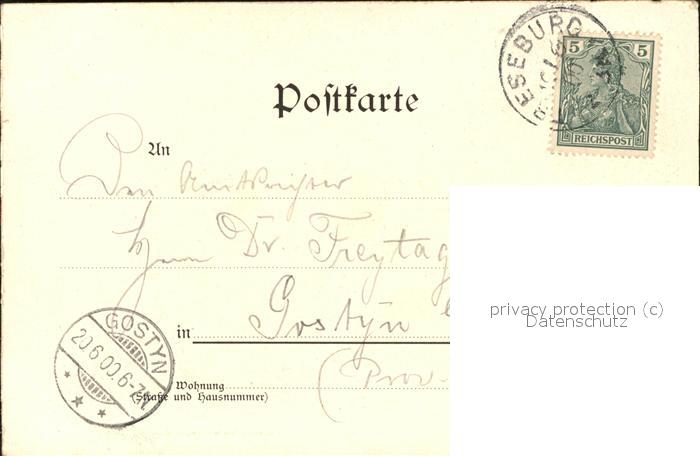 ESEBURG
5 5
REICHSPOST
Postkarte
An
Den Amtsrichter
Herrn Dr. Freytag
privacy protection (c)
Datenschutz
in Gostyn
GOSTYN
20.6.00.6-7N.
Wohnung
(Straße und Hausnummer)
(Prov.